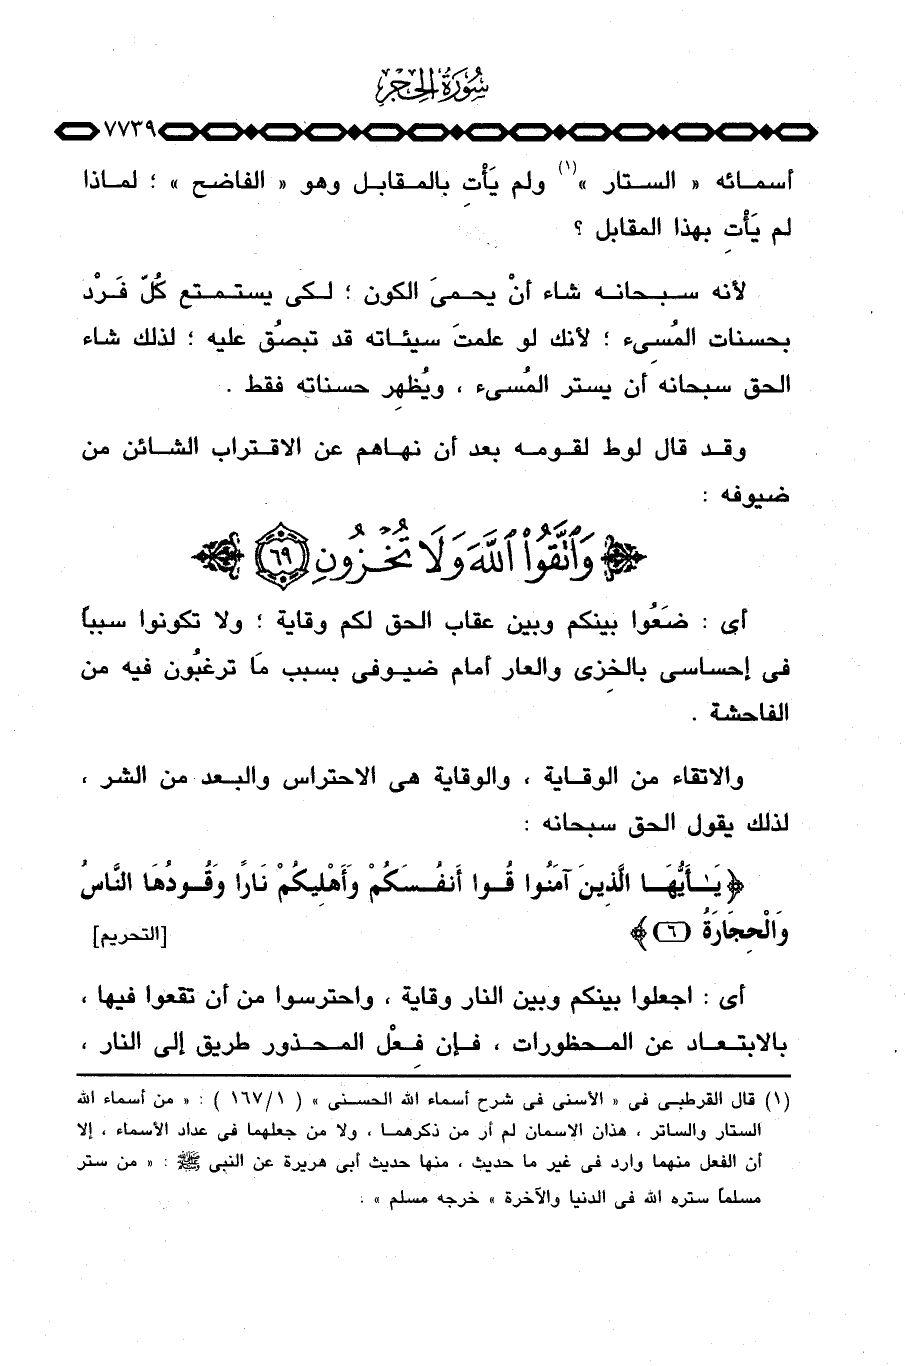 سُورَةُ الحِجرِ
٧٧٣٩
أسمـائه « الستار »(١) ولم يَأْتِ بالمقابل وهو « الفاضح » ؛ لماذا
لم يَأْتِ بهذا المقابل ؟
لأنه سبحانه شاء أنْ يحمىَ الكون ؛ لكى يستمتع كُلّ فَرْد
بحسنات المُسِىء ؛ لأنك لو علمتَ سيئاته قد تبصُق عليه ؛ لذلك شاء
الحق سبحانه أن يستر المُسىء ، ويُظهِر حسناته فقط .
وقد قال لوط لقومه بعد أن نهاهم عن الاقتراب الشائن من
ضيوفه :
وَاتَّقُوا اللَّهَ وَلَا تُخْزُونِ ٦٩
أى : ضَعُوا بينكم وبين عقاب الحق لكم وقاية ؛ ولا تكونوا سبباً
فى إحساسى بالخِزى والعار أمام ضيوفى بسبب مَا ترغبُون فيه من
الفاحشة .
والاتقاء من الوقاية ، والوقاية هى الاحتراس والبعد من الشر ،
لذلك يقول الحق سبحانه :
﴿ يَـٰأَيُّهَا الَّذِينَ آمَنُوا قُوا أَنفُسَكُمْ وَأَهْلِيكُمْ نَارًا وَقُودُهَا النَّاسُ
وَالْحِجَارَةُ (٦) ﴾ [التحريم]
أى : اجعلوا بينكم وبين النار وقاية ، واحترسوا من أن تقعوا فيها ،
بالابتعاد عن المحظورات ، فإن فِعْل المحذور طريق إلى النار ،
(١) قال القرطبى فى « الأسنى فى شرح أسماء الله الحسنى » ( ١٦٧/١ ) : « من أسماء الله
الستار والساتر ، هذان الاسمان لم أر من ذكرهما ، ولا من جعلهما فى عداد الأسماء ، إلا
أن الفعل منهما وارد فى غير ما حديث ، منها حديث أبى هريرة عن النبى ﷺ : « من ستر
مسلماً ستره الله فى الدنيا والآخرة » خرجه مسلم » .